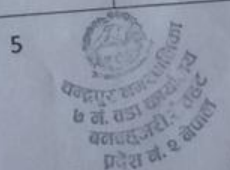 5
चन्द्रपुर नगरपालिका
७ नं. वडा कार्यालय
रौतहट
प्रदेश नं. २ नेपाल